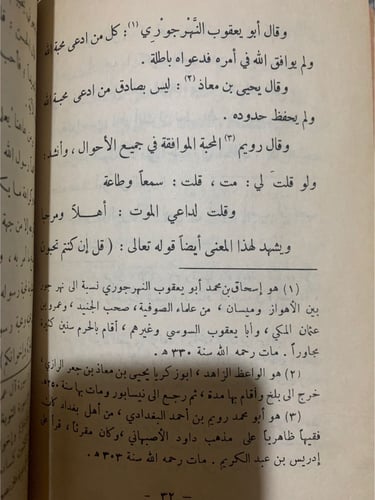 وقال أبو يعقوب النَّهْرجوْري (١) : كل من ادعى محبة الله
ولم يوافق الله في أمره فدعواه باطلة .
وقال يحيى بن معاذ (٢) : ليس بصادق من ادعى محبة الله
ولم يحفظ حدوده .
وقال رويم (٣) المحبة الموافقة في جميع الأحوال ، وأنشد :
ولو قلتَ لي : مت ، قلت : سمعاً وطاعة
وقلت لداعي الموت : أهلاً ومرحبا
ويشهد لهذا المعنى أيضاً قوله تعالى : ( قل إن كنتم تحبون
(١) هو إسحاق بن محمد أبو يعقوب النهرجوري نسبة الى نهر جور
بين الأهواز وميسان ، من علماء الصوفية ، صحب الجنيد ، وعمرو بن
عثمان المكي ، وأبا يعقوب السوسي وغيرهم ، أقام بالحرم سنين كثيرة
مجاوراً . مات رحمه الله سنة ٣٣٠ هـ .
(٢) هو الواعظ الزاهد ، ابوز كريا يحيى بن معاذ بن جعفر الرازي ،
خرج الى بلخ وأقام بها مدة ، ثم رجع الى نيسابور ومات بها سنة ٢٥٠ هـ
(٣) هو أبو محمد رويم بن أحمد البغدادي ، من أهل بغداد كان
فقيهاً ظاهرياً على مذهب داود الأصبهاني ، وكان مقرئاً ، قرأ على
إدريس بن عبد الكريم . مات رحمه الله سنة ٣٠٣ هـ .
- ٣٢ -